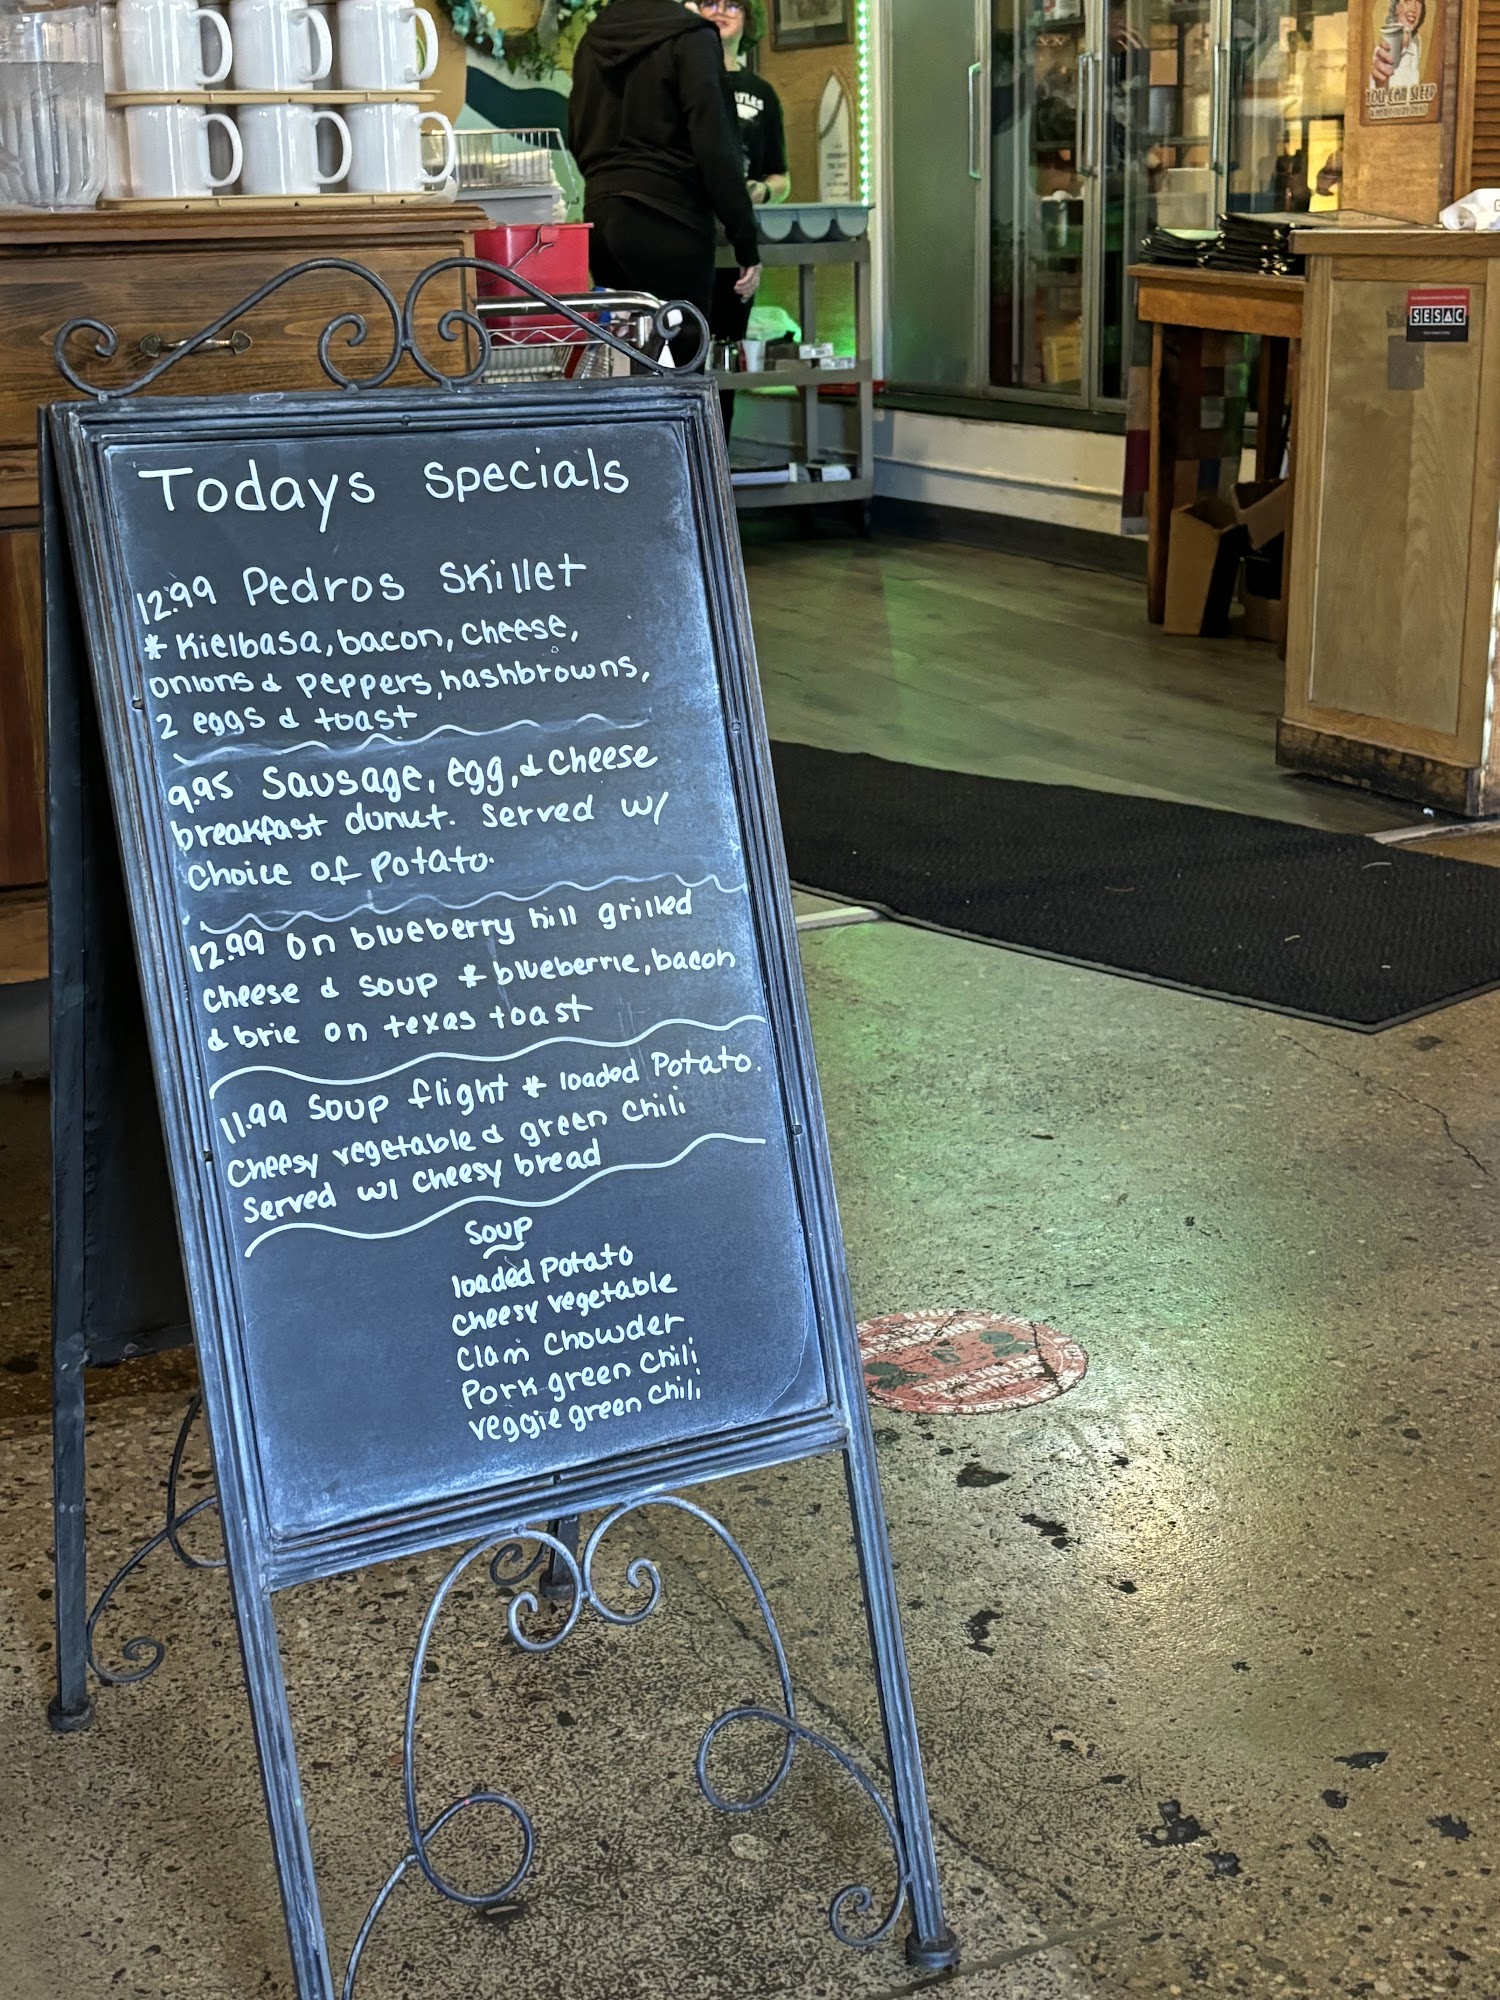 YOU CAN SLEEP
SESAC
Todays Specials
12.99 Pedros Skillet
* Kielbasa, bacon, cheese,
onions & peppers, hashbrowns,
2 eggs & toast
9.95 Sausage, egg, & cheese
breakfast donut. Served w/
choice of potato.
12.99 on blueberry hill grilled
cheese & soup * blueberrie, bacon
& brie on texas toast
11.99 Soup flight * loaded Potato.
Cheesy vegetable & green chili
Served w/ cheesy bread
Soup
loaded potato
cheesy vegetable
Clam Chowder
Pork green chili
veggie green chili